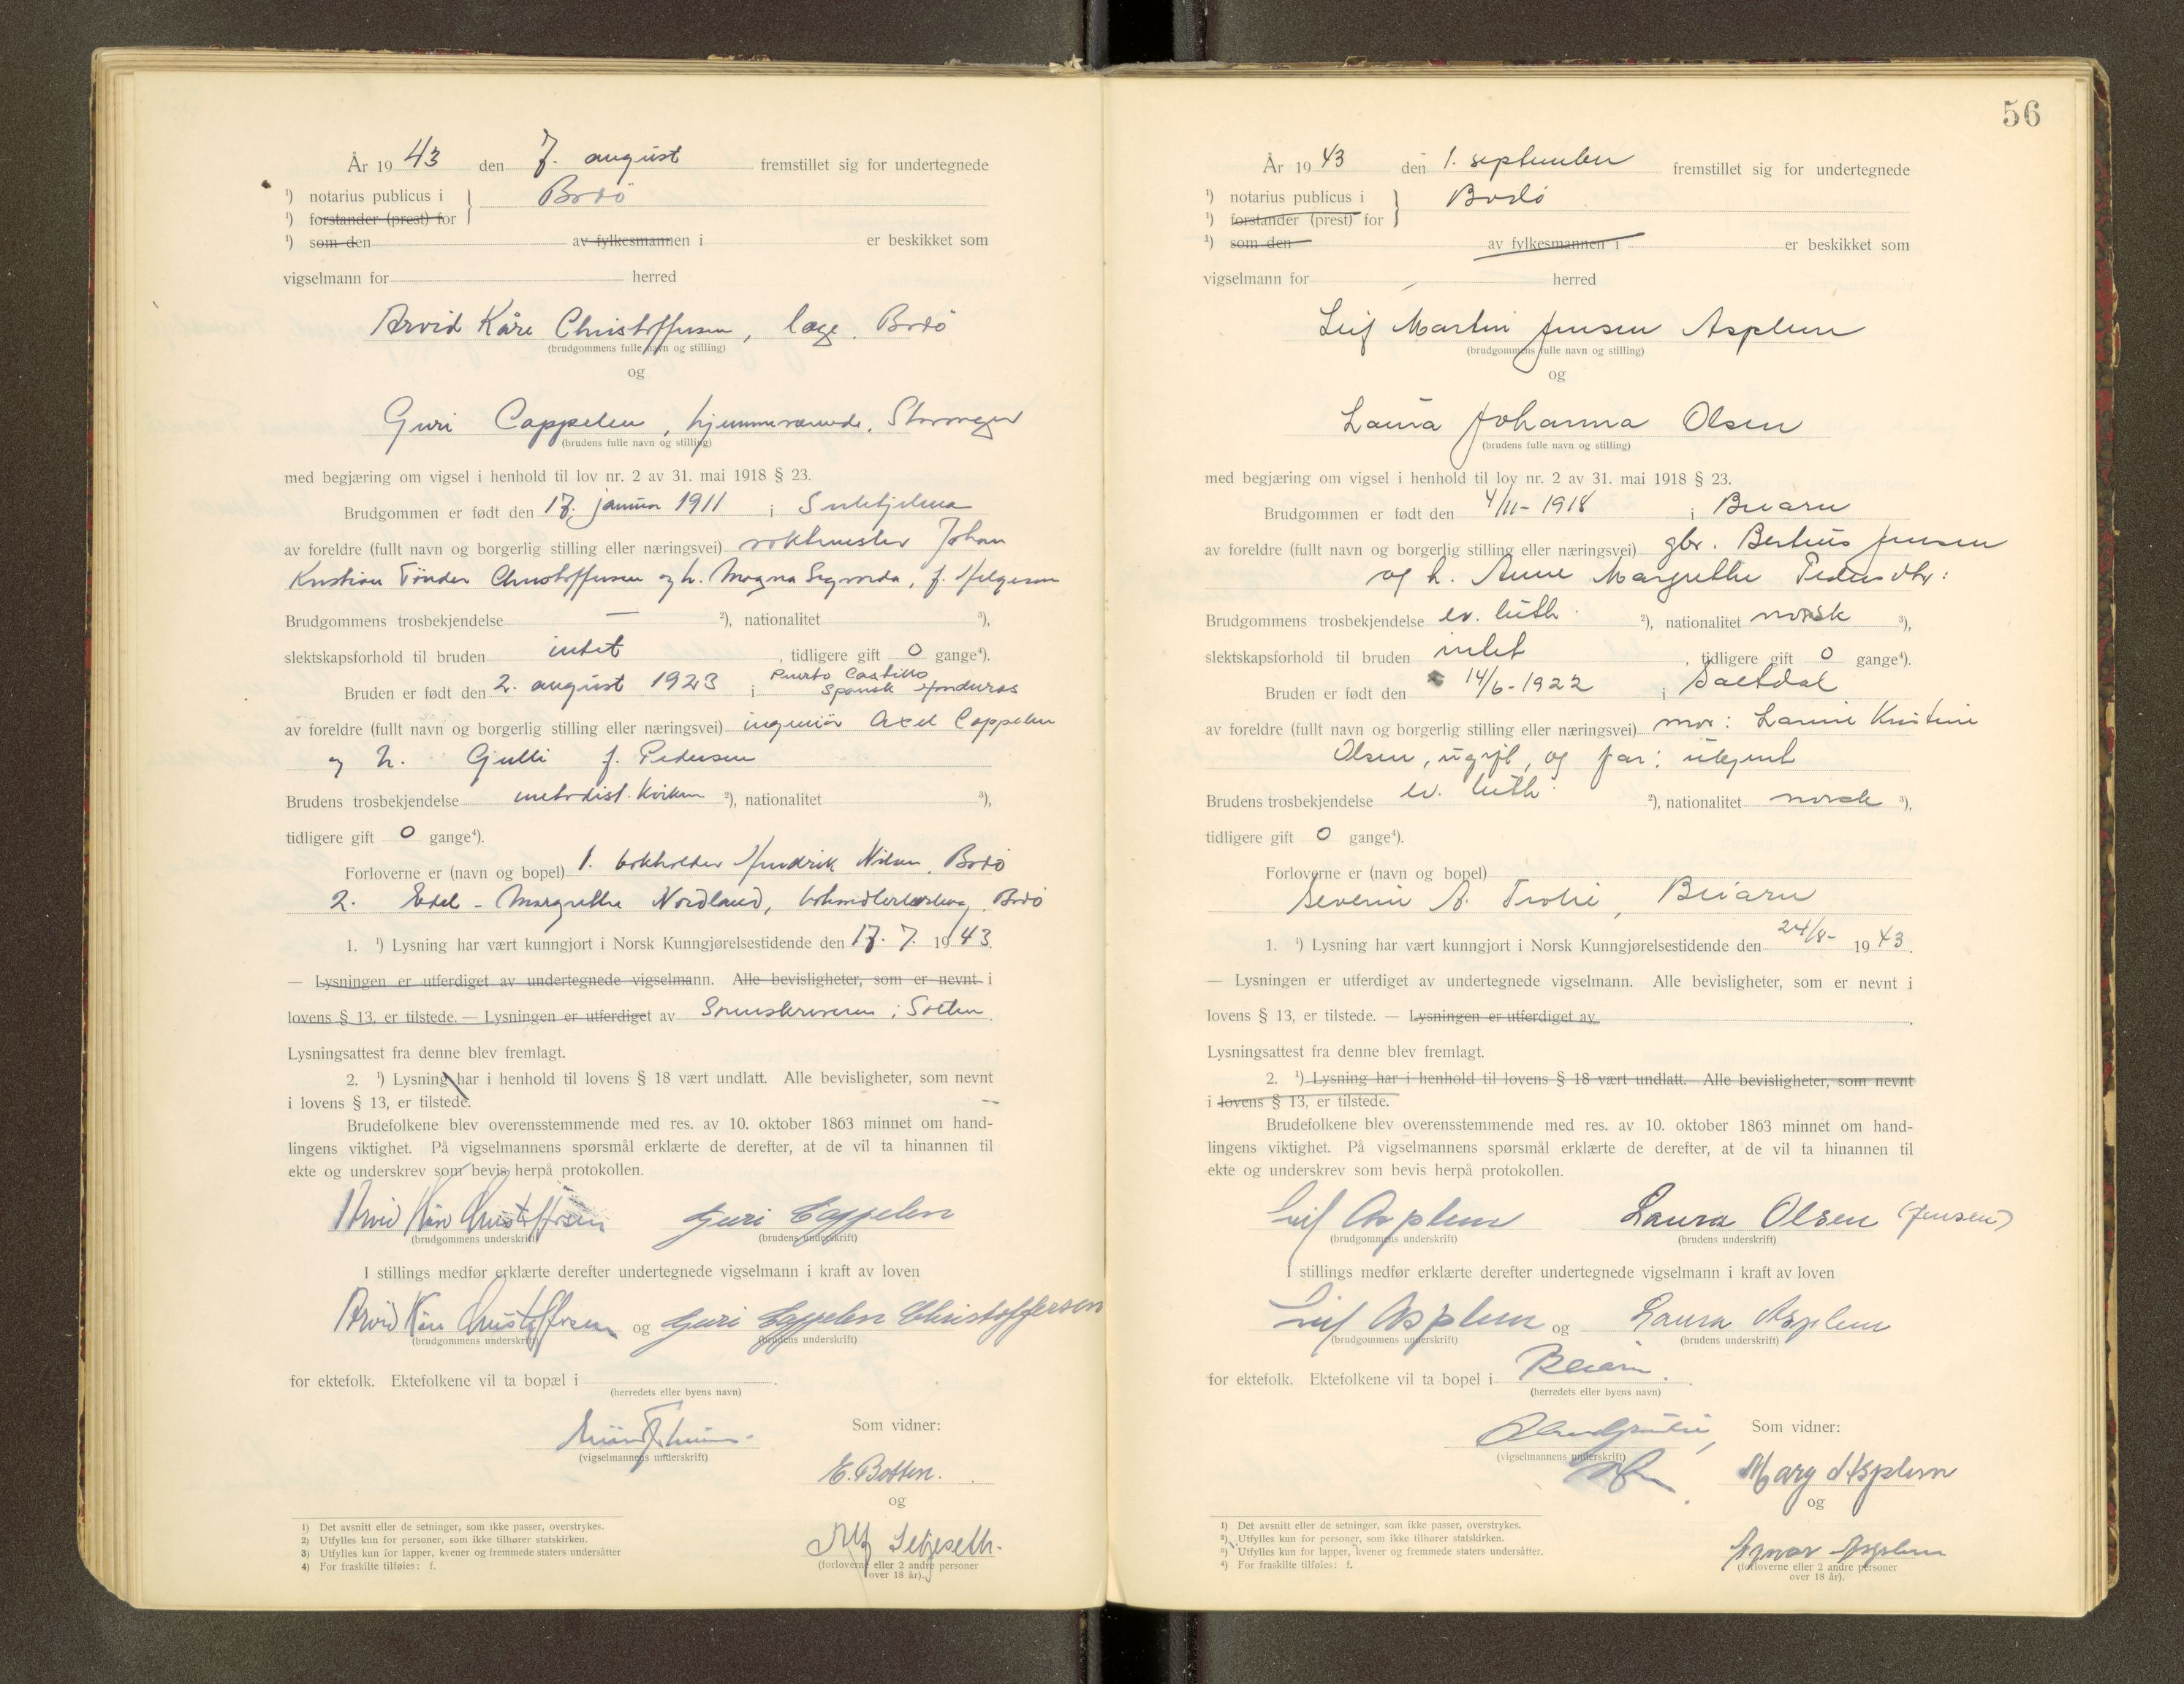 År 1943 den 7. august fremstillet sig for undertegnede
¹) notarius publicus i } Bodö
¹) forstander (prest) for
¹) som den av fylkesmannen i er beskikket som
vigselmann for herred
Arvid Kåre Christoffersen, læge, Bodö
(brudgommens fulle navn og stilling)
og
Guri Cappelen, hjemmeværende, Stavanger
(brudens fulle navn og stilling)
med begjæring om vigsel i henhold til lov nr. 2 av 31. mai 1918 § 23.
Brudgommen er født den 17. januar 1911 i Sulitjelma
av foreldre (fullt navn og borgerlig stilling eller næringsvei) Johan
Kristian Tönder Christoffersen og h. Magna Sigvarda, f. Helgesen
Brudgommens trosbekjendelse — ²), nationalitet ³),
slektskapsforhold til bruden intet, tidligere gift 0 gange⁴).
Bruden er født den 2. august 1923 i Puerto Castillo
Spansk Honduras
av foreldre (fullt navn og borgerlig stilling eller næringsvei) ingeniör Axel Cappelen
og h. Gulli f. Pedersen
Brudens trosbekjendelse metodist. kirken ²), nationalitet ³),
tidligere gift 0 gange⁴).
Forloverne er (navn og bopel) 1. bokholder Hendrik Nilsen, Bodö
2. Edel-Margrethe Nordland, Bodö
1. ¹) Lysning har vært kunngjort i Norsk Kunngjørelsestidende den 17. 7. 1943.
— Lysningen er utferdiget av undertegnede vigselmann. Alle bevisligheter, som er nevnt i
lovens § 13, er tilstede. — Lysningen er utferdiget av Sorenskriveren i Salten.
Lysningsattest fra denne blev fremlagt.
2. ¹) Lysning har i henhold til lovens § 18 vært undlatt. Alle bevisligheter, som nevnt
i lovens § 13, er tilstede. —
Brudefolkene blev overensstemmende med res. av 10. oktober 1863 minnet om hand-
lingens viktighet. På vigselmannens spørsmål erklærte de derefter, at de vil ta hinannen til
ekte og underskrev som bevis herpå protokollen.
Arvid Kåre Christoffersen Guri Cappelen
(brudgommens underskrift) (brudens underskrift)
I stillings medfør erklærte derefter undertegnede vigselmann i kraft av loven
Arvid Kåre Christoffersen og Guri Cappelen Christoffersen
(brudgommens underskrift) (brudens underskrift)
for ektefolk. Ektefolkene vil ta bopæl i .
(herredets eller byens navn)
Som vidner:
(vigselmannens underskrift)
E. Botten.
og
(forloverne eller 2 andre personer
over 18 år).
1) Det avsnitt eller de setninger, som ikke passer, overstrykes.
2) Utfylles kun for personer, som ikke tilhører statskirken.
3) Utfylles kun for lapper, kvener og fremmede staters undersåtter
4) For fraskilte tilføies: f.
56
År 1943 den 1. september fremstillet sig for undertegnede
¹) notarius publicus i } Bodö
¹) forstander (prest) for
¹) som den av fylkesmannen i er beskikket som
vigselmann for herred
Leif Martin Jensen Asplem
(brudgommens fulle navn og stilling)
og
Laura Johanna Olsen
(brudens fulle navn og stilling)
med begjæring om vigsel i henhold til lov nr. 2 av 31. mai 1918 § 23.
Brudgommen er født den 4/11-1918 i Beiarn
av foreldre (fullt navn og borgerlig stilling eller næringsvei) gbr. Bertius Jensen
og h. Anne Margrethe Pedersdtr:
Brudgommens trosbekjendelse ev. luth. ²), nationalitet norsk ³),
slektskapsforhold til bruden intet, tidligere gift 0 gange⁴).
Bruden er født den 14/6-1922 i Saltdal
av foreldre (fullt navn og borgerlig stilling eller næringsvei) mor: Kristine
Olsen, ugift, og far: ubekjent
Brudens trosbekjendelse ev. luth. ²), nationalitet norsk ³),
tidligere gift 0 gange⁴).
Forloverne er (navn og bopel)
Severin A. Beiarn
1. ¹) Lysning har vært kunngjort i Norsk Kunngjørelsestidende den 24/8- 1943.
— Lysningen er utferdiget av undertegnede vigselmann. Alle bevisligheter, som er nevnt i
lovens § 13, er tilstede. — Lysningen er utferdiget av .
Lysningsattest fra denne blev fremlagt.
2. ¹) Lysning har i henhold til lovens § 18 vært undlatt. Alle bevisligheter, som nevnt
i lovens § 13, er tilstede.
Brudefolkene blev overensstemmende med res. av 10. oktober 1863 minnet om hand-
lingens viktighet. På vigselmannens spørsmål erklærte de derefter, at de vil ta hinannen til
ekte og underskrev som bevis herpå protokollen.
Leif Asplem Laura Olsen (Jensen)
(brudgommens underskrift) (brudens underskrift)
I stillings medfør erklærte derefter undertegnede vigselmann i kraft av loven
Leif Asplem og Laura Asplem
(brudgommens underskrift) (brudens underskrift)
for ektefolk. Ektefolkene vil ta bopel i Beiarn.
(herredets eller byens navn)
Som vidner:
(vigselmannens underskrift)
Marg Asplem
og
Asplem
(forloverne eller 2 andre personer
over 18 år).
¹) Det avsnitt eller de setninger, som ikke passer, overstrykes.
²) Utfylles kun for personer, som ikke tilhører statskirken.
³) Utfylles kun for lapper, kvener og fremmede staters undersåtter.
⁴) For fraskilte tilføies: f.